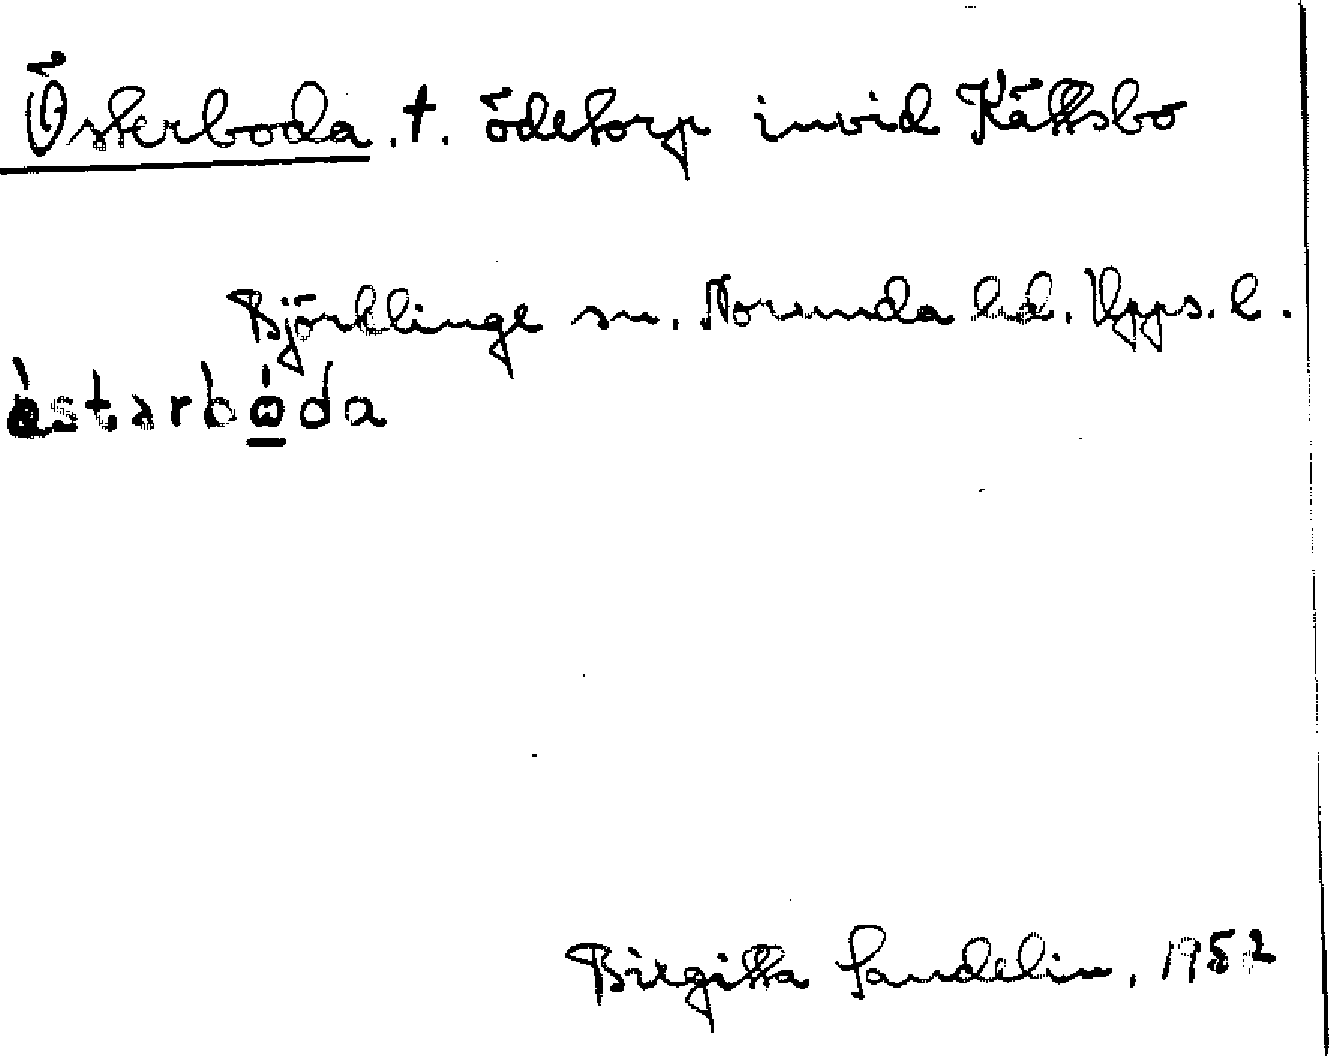 Österboda. t. ödetorp invid Kättsbo
Björklinge sn. Norunda hd. Upps. l.
Birgitta Sandelin, 1952